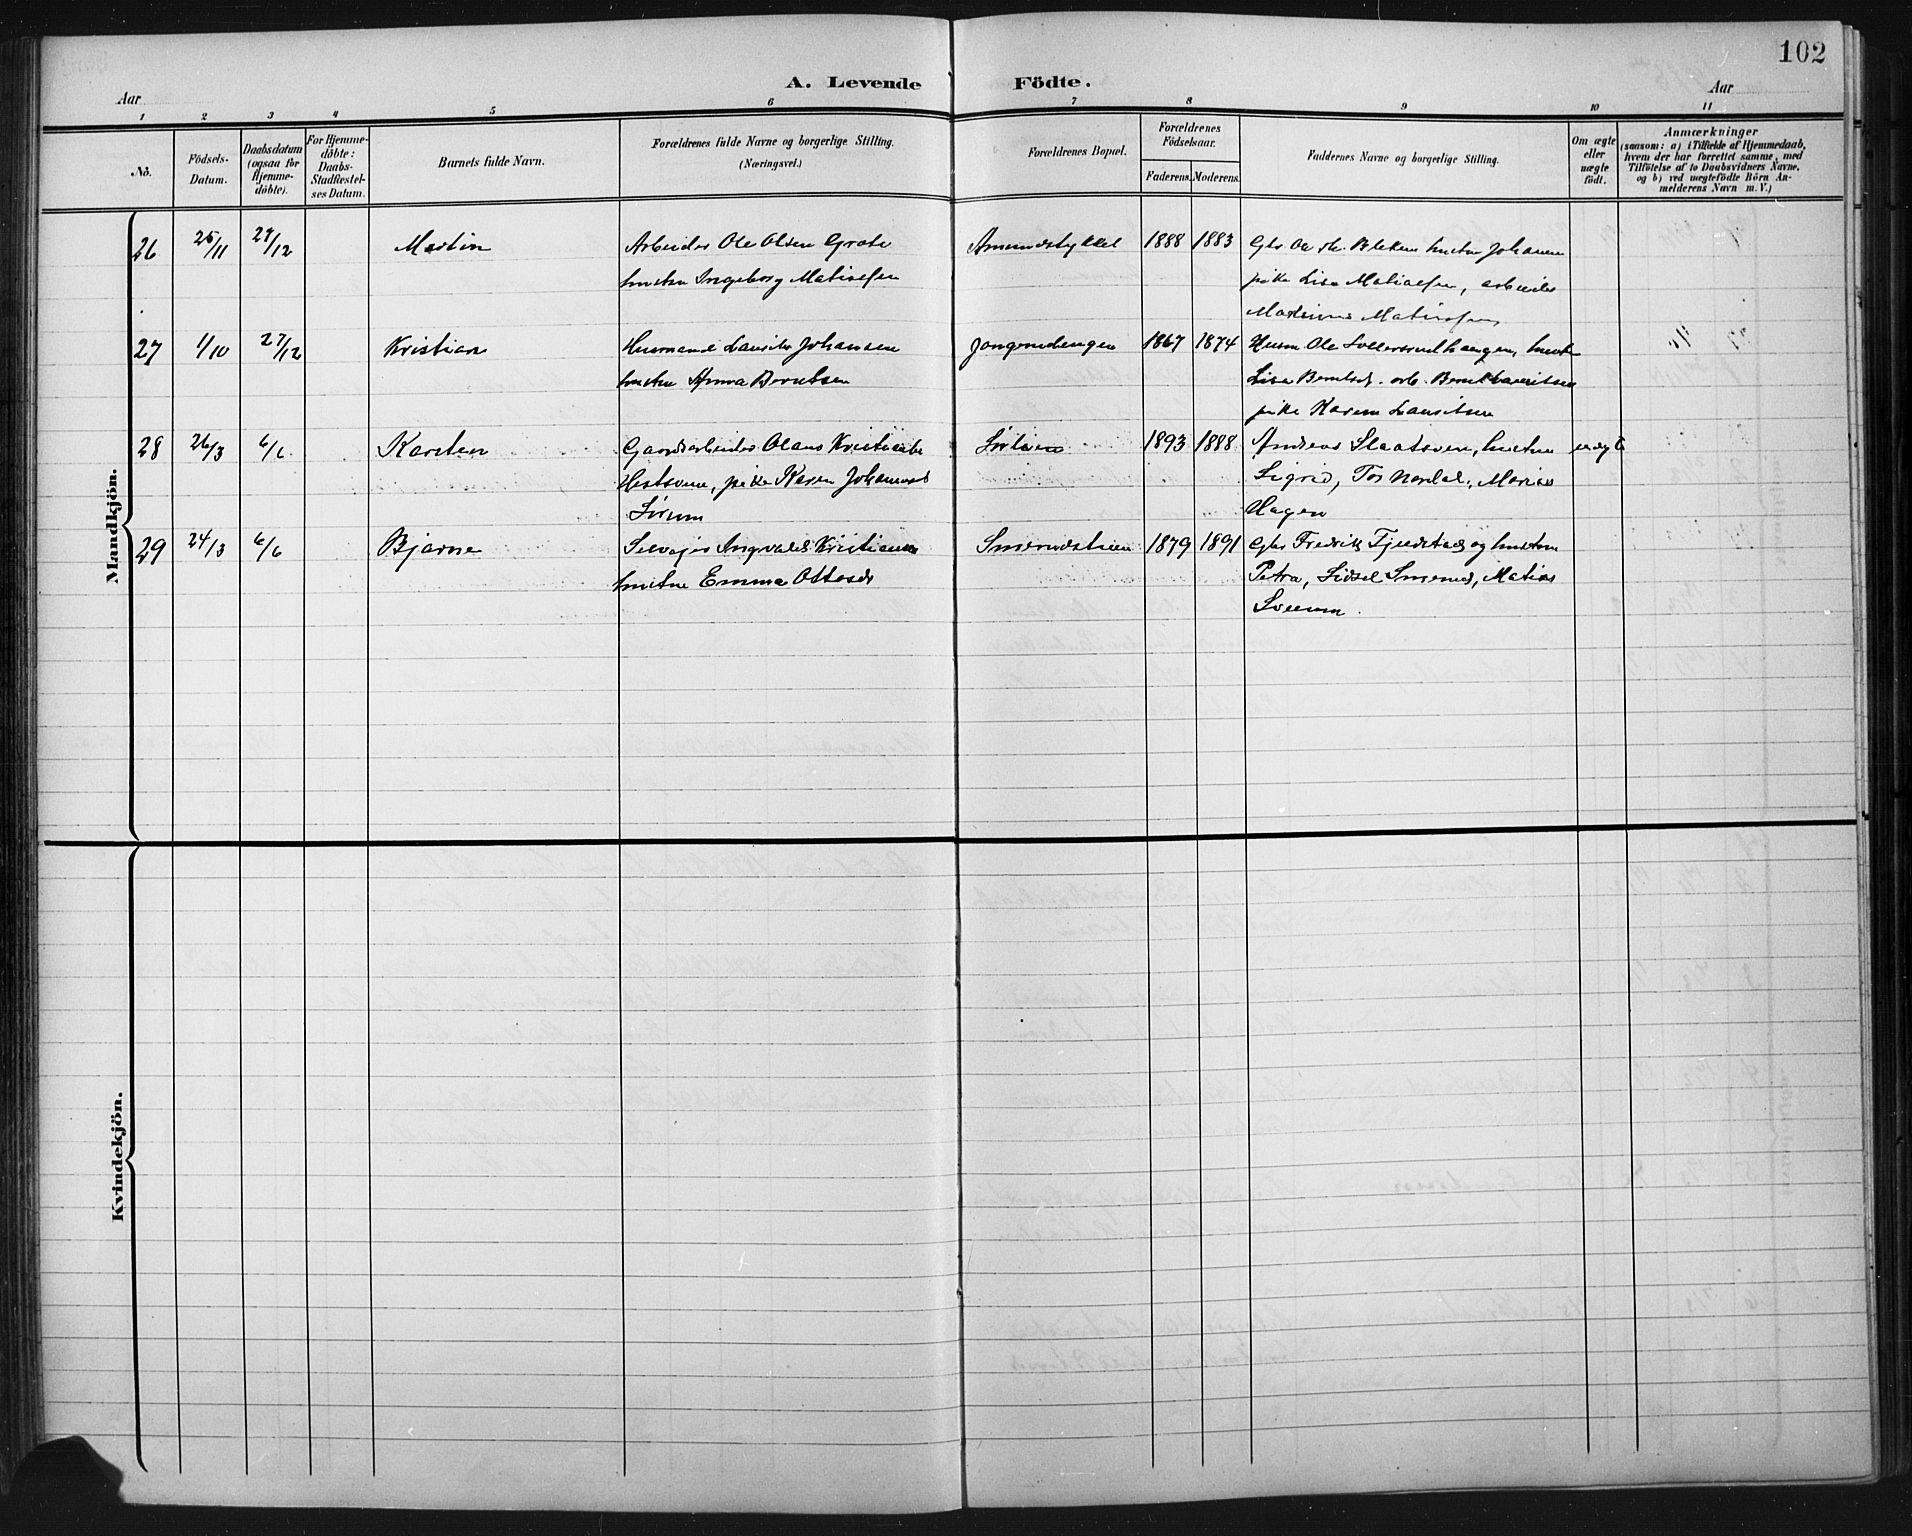 102
A. Levende Födte.
Aar
Aar
1 2 3 4 5 6 7 8 9 10 11
No.
Födsels-Datum.
Daabsdatum (ogsaa for Hjemme-döbte).
For Hjemme-döbte: Daabs-Stadfæstel-ses Datum.
Barnets fulde Navn.
Forældrenes fulde Navne og borgerlige Stilling.
(Næringsvei.)
Forældrenes Bopæl.
Forældrenes Födselsaar.
Faderens. Moderens.
Faddernes Navne og borgerlige Stilling.
Om ægte eller uægte födt.
Anmærkninger
(saasom: a) i Tilfælde af Hjemmedaab,
hvem der har forrettet samme, med
Tilföielse af to Daabsvidners Navne,
og b) ved uægtefödte Börn An-
melderens Navn m. V.)
Mandkjön.
26 25/11 27/12 Martin Arbeider Ole Olsen Grote Amundstykket 1888 1883 Bleken hustru Johanne
hustru Ingeborg Matisesen pike Lise Matisesen, arbeider
Matisesen
27 1/10 27/12 Kristian Husmand Laurits Johansen 1867 1874 Husm. Ole hustru
hustru Anna Berntsen Lise Berntsd. arb. Bernt Lauritsen
pike Karen Lauritsen
28 26/3 6/6 Karsten Gaardsarbeider Olaus Kristiansen 1893 1888 Andreas Slaatsveen, hustru uægte
Hestsveen, pike Karen Johannesd. Sigrid, Tor Nordal, Marie
Sörum Hagen
29 24/3 6/6 Bjarne Selveier Angvald Kristiansen Smerudstuen 1879 1891 Gbr Fredrik Fjeldstad og hustru
hustru Emma Ottesd. Petra, Sidsel Smerud, Matias
Sveum.
Kvindekjön.